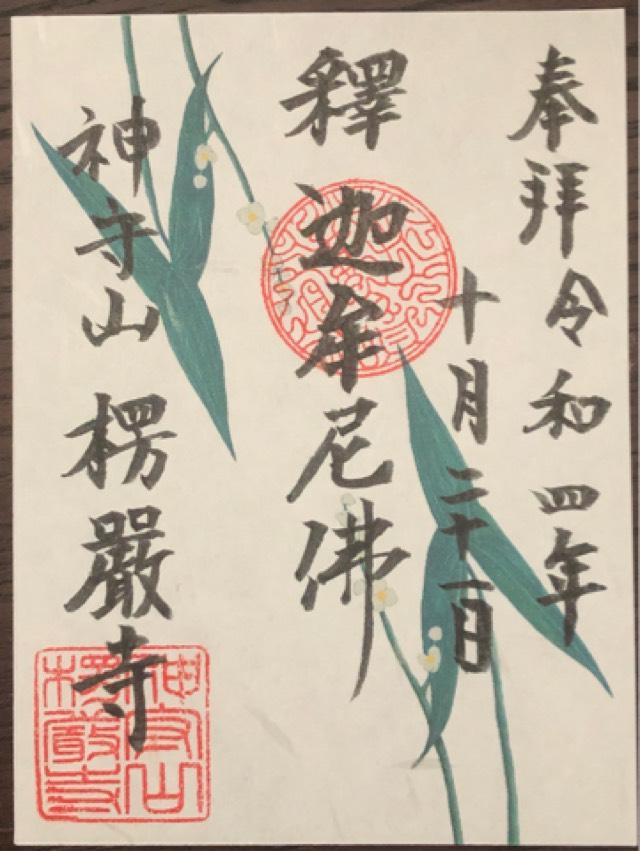 奉拜令和四年
十月二十一日
釋迦牟尼佛
神守山楞嚴寺
神守山
楞嚴寺